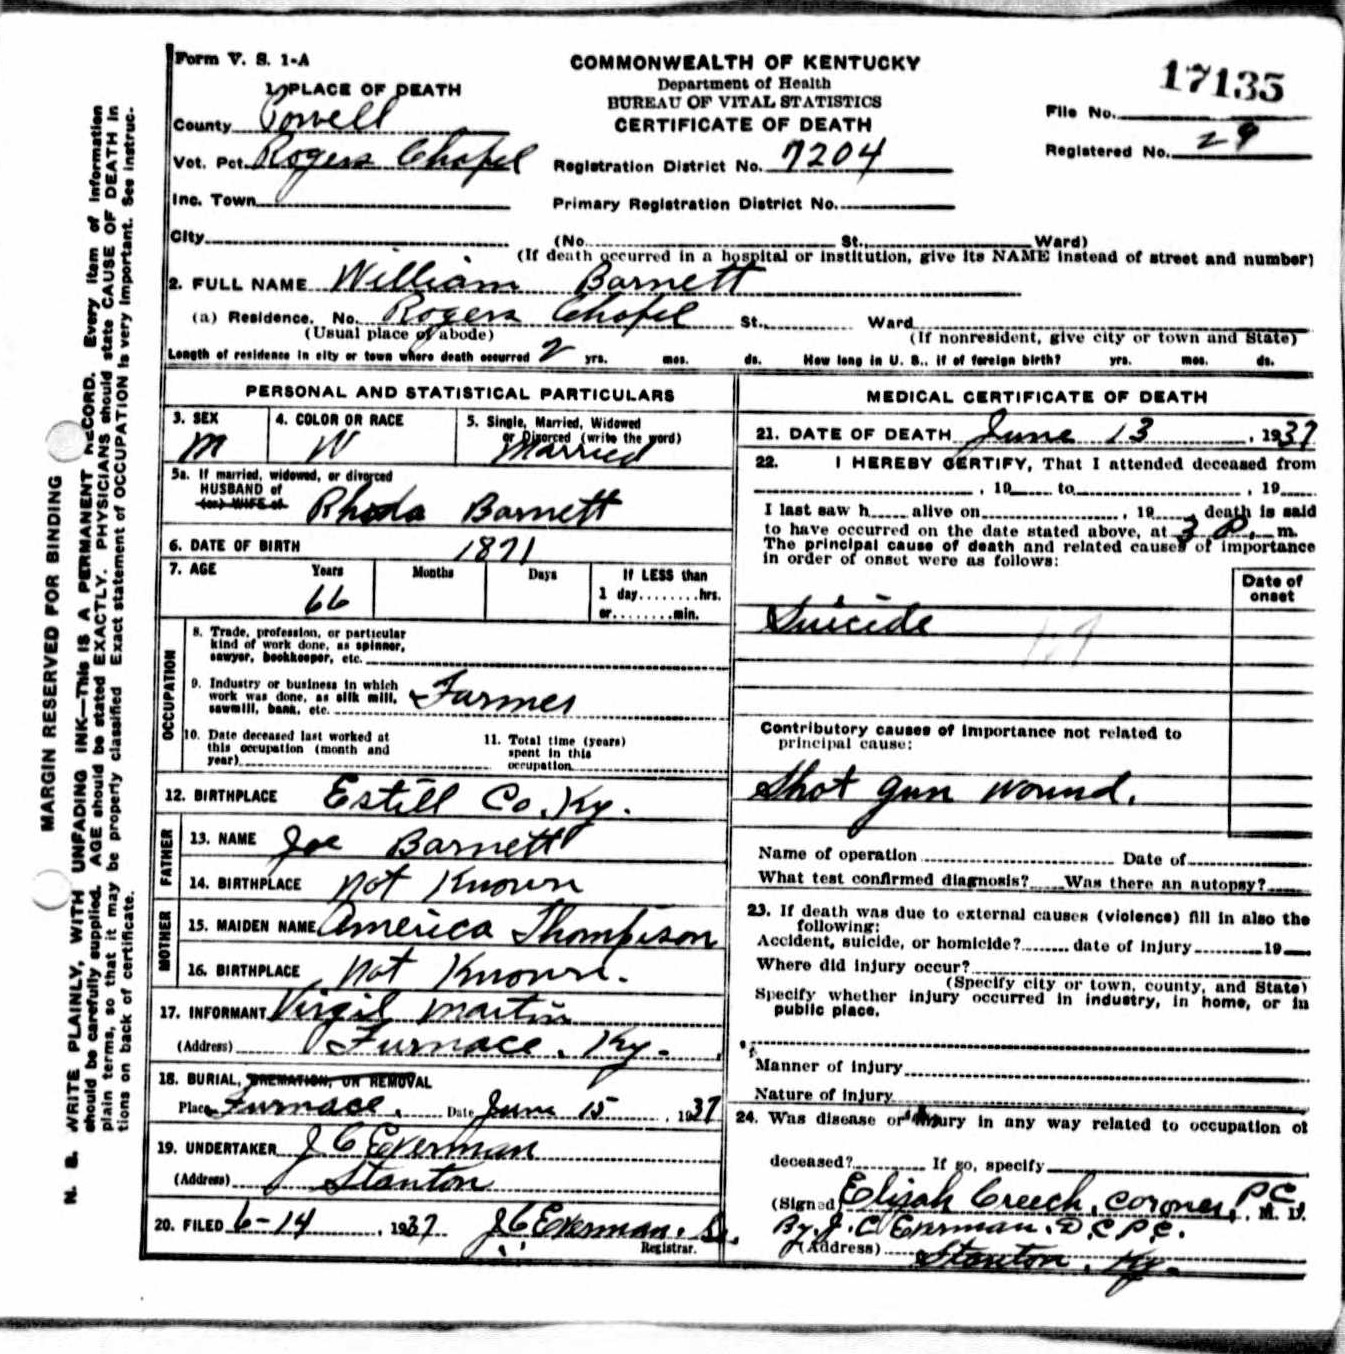 Form V. S. 1-A
COMMONWEALTH OF KENTUCKY
Department of Health
BUREAU OF VITAL STATISTICS
CERTIFICATE OF DEATH
17135
File No.
Registered No. 29
1. PLACE OF DEATH
County Powell
Vot. Pct. Rogers Chapel
Registration District No. 7204
Inc. Town
Primary Registration District No.
City (No. St., Ward)
(If death occurred in a hospital or institution, give its NAME instead of street and number)
2. FULL NAME William Barnett
(a) Residence. No. Rogers Chapel St., Ward
(Usual place of abode) (If nonresident, give city or town and State)
Length of residence in city or town where death occurred 2 yrs. mos. ds. How long in U. S., if of foreign birth? yrs. mos. ds.
PERSONAL AND STATISTICAL PARTICULARS
3. SEX
M
4. COLOR OR RACE
W
5. Single, Married, Widowed
or Divorced (write the word)
Married
5a. If married, widowed, or divorced
HUSBAND of
(or) WIFE of
Rhoda Barnett
6. DATE OF BIRTH 1871
7. AGE Years Months Days If LESS than
66 1 day........hrs.
or........min.
OCCUPATION
8. Trade, profession, or particular
kind of work done, as spinner,
sawyer, bookkeeper, etc.
9. Industry or business in which
work was done, as silk mill,
sawmill, bank, etc.
Farmer
10. Date deceased last worked at
this occupation (month and
year)
11. Total time (years)
spent in this
occupation
12. BIRTHPLACE Estill Co. Ky.
FATHER
13. NAME Joe Barnett
14. BIRTHPLACE Not Known
MOTHER
15. MAIDEN NAME America Thompson
16. BIRTHPLACE Not Known.
17. INFORMANT Virgil Martin
(Address) Furnace, Ky.
18. BURIAL, CREMATION, OR REMOVAL
Place Furnace. Date June 15, 1937
19. UNDERTAKER J C Ewerman
(Address) Stanton
20. FILED 6-14, 1937 J C Ewerman.
Registrar.
MEDICAL CERTIFICATE OF DEATH
21. DATE OF DEATH June 13, 1937
22. I HEREBY CERTIFY, That I attended deceased from
, 19 to , 19
I last saw h alive on , 19 , death is said
to have occurred on the date stated above, at 3 P. m.
The principal cause of death and related causes of importance
in order of onset were as follows:
Date of
onset
Suicide
Contributory causes of importance not related to
principal cause:
Shot gun wound.
Name of operation Date of
What test confirmed diagnosis? Was there an autopsy?
23. If death was due to external causes (violence) fill in also the
following:
Accident, suicide, or homicide? date of injury 19
Where did injury occur?
(Specify city or town, county, and State)
Specify whether injury occurred in industry, in home, or in
public place.
Manner of injury
Nature of injury
24. Was disease or injury in any way related to occupation of
deceased? If so, specify
(Signed) Elijah Creech, Coroner, P.C., M. D.
By. J. C Ewerman. D.C.P.C.
(Address) Stanton, Ky.
MARGIN RESERVED FOR BINDING
N. B. WRITE PLAINLY, WITH UNFADING INK—This IS A PERMANENT RECORD. Every item of information
should be carefully supplied. AGE should be stated EXACTLY. PHYSICIANS should state CAUSE OF DEATH in
plain terms, so that it may be properly classified. Exact statement of OCCUPATION is very important. See instruc-
tions on back of certificate.